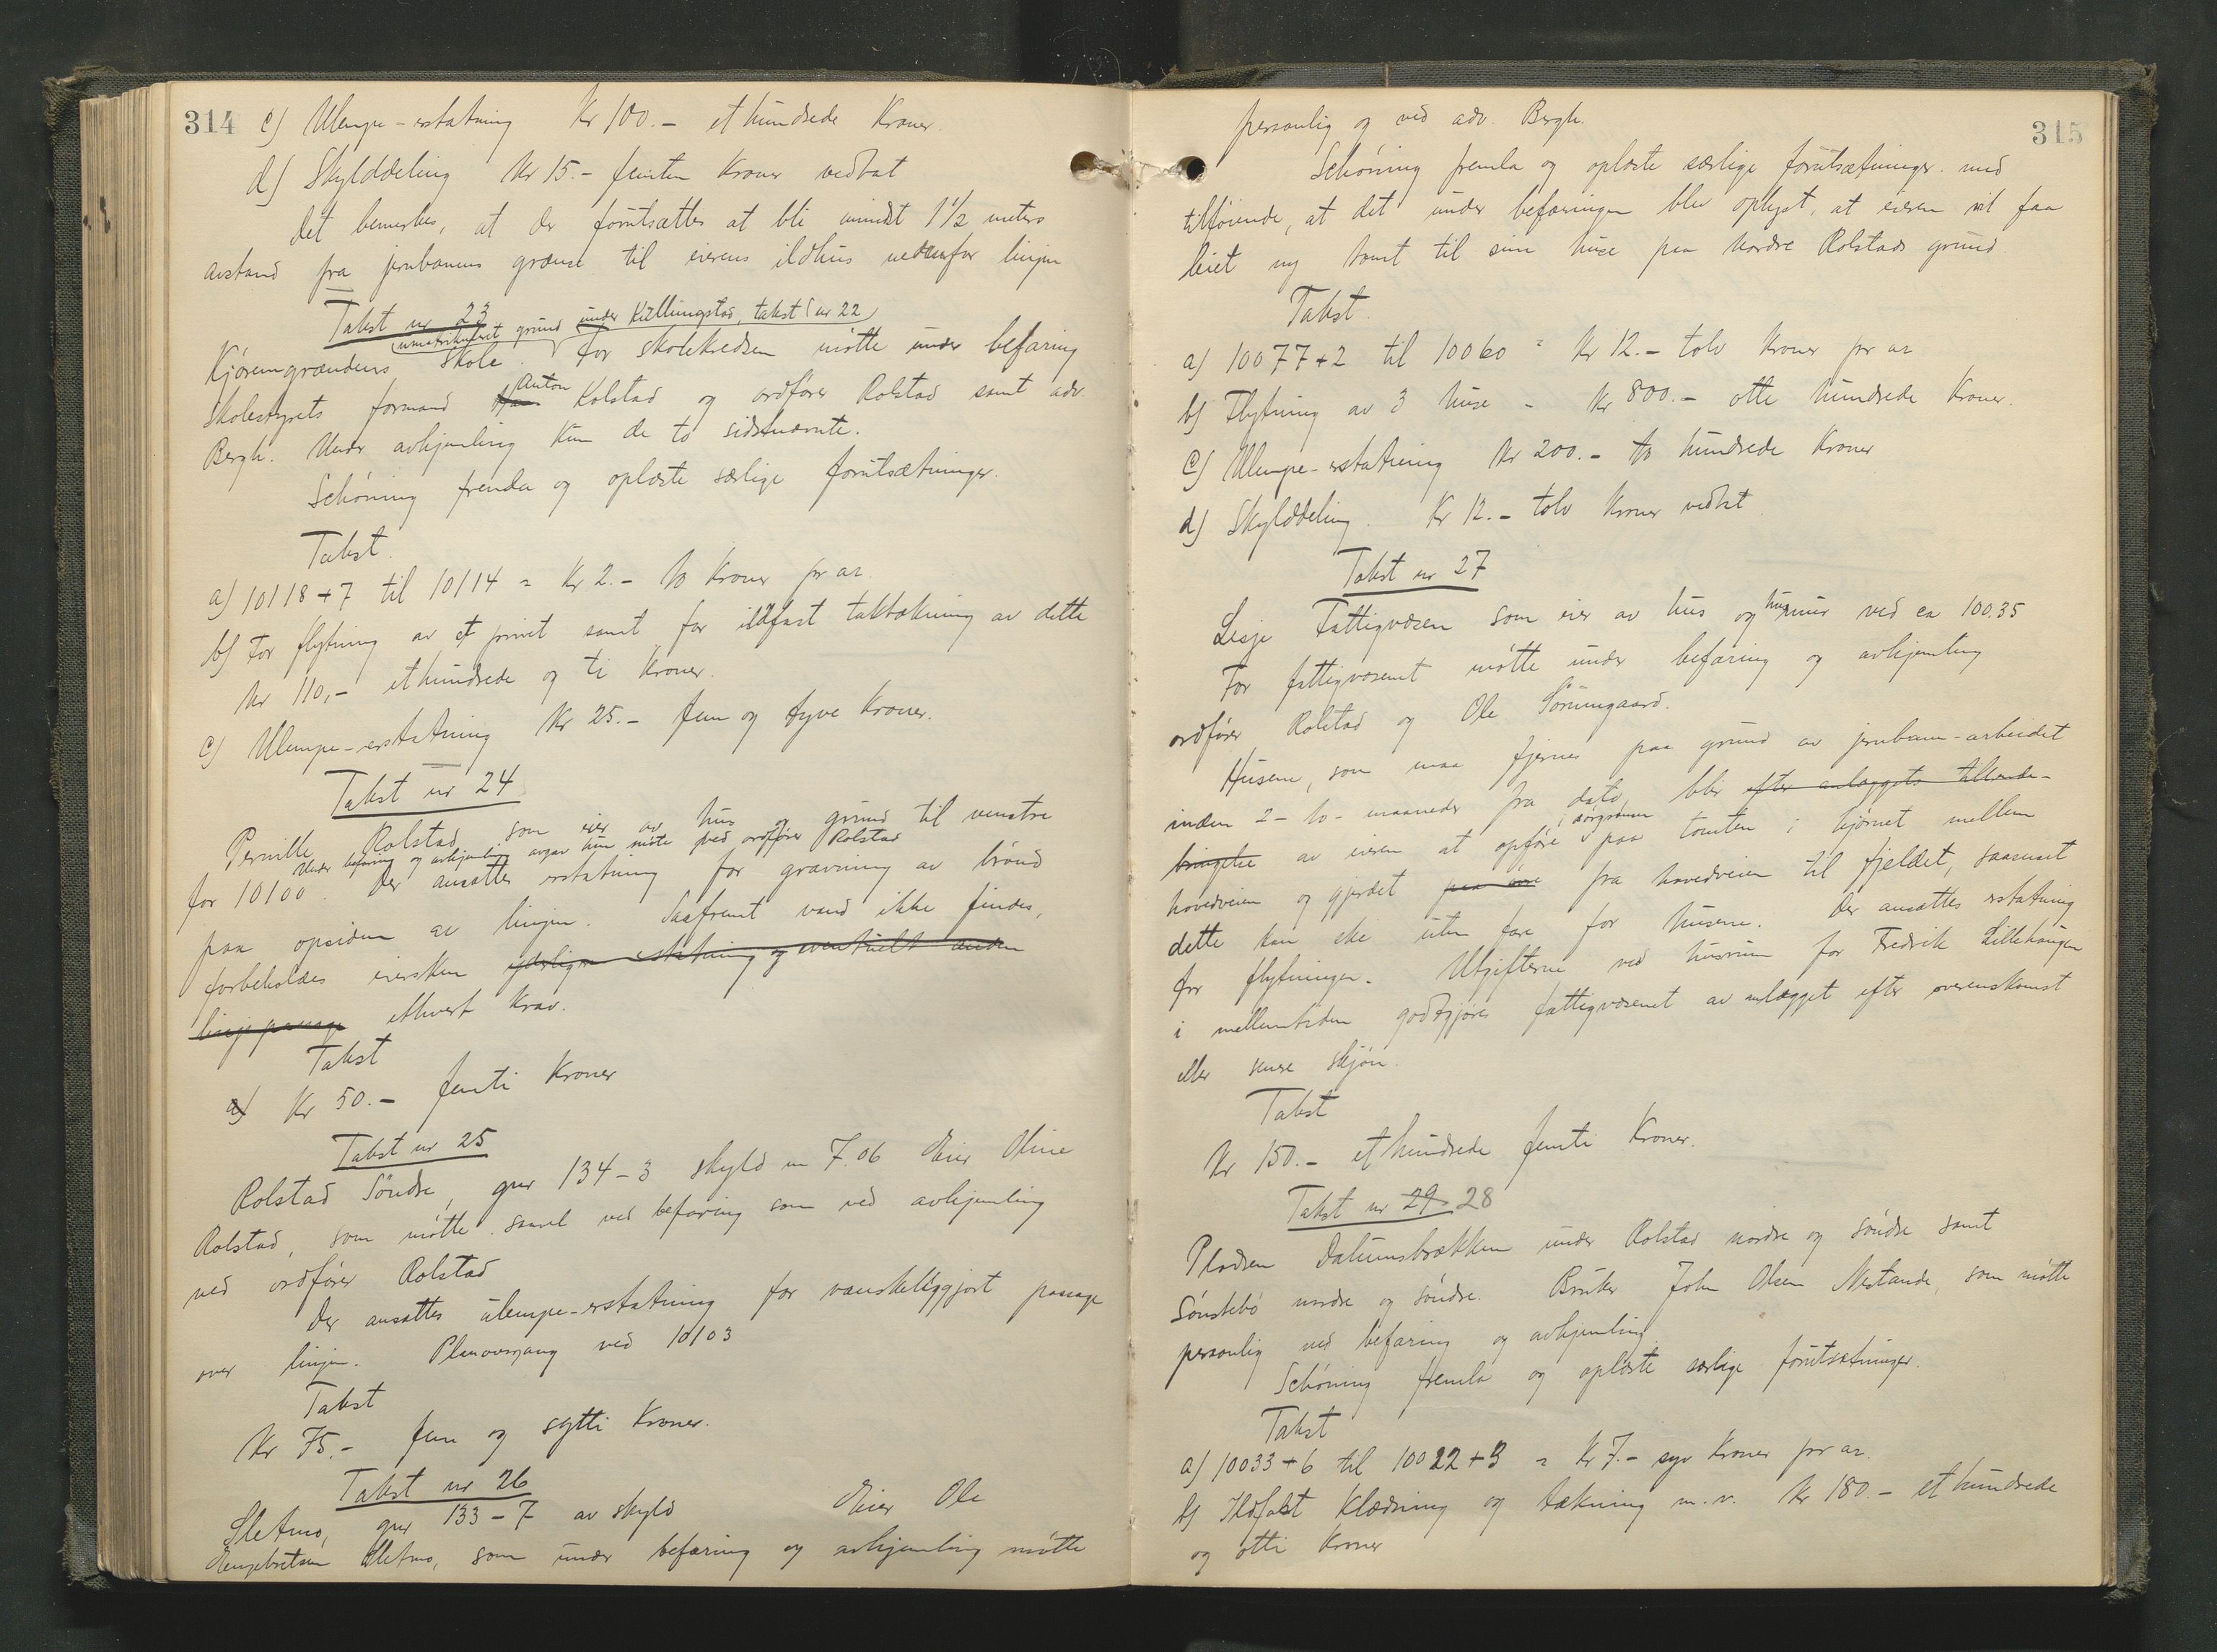 314
c) Ulempe-erstatning Kr 100.- et hundrede Kroner.
d) Skylddeling Kr 15.- femten Kroner vedtat
Det bemerkes, at der forutsættes at bli mindst 1 1/2 meters
avstand fra jernbanens grænse til eierens ildhus nedenfor linjen
Takst nr 23
umatrikulert grund under Kullingstad, takst nr 22
Kjøremgrændens Skole. For skolekredsen møtte under befaring
Anton
skolestyrets formand Kolstad og ordfører Rolstad samt adv.
Bergh. Under avhjemling kun de to sidstnævnte.
Schöning fremla og oplæste særlige forutsætninger.
Takst.
a) 10118+7 til 10114 = Kr 2.- to Kroner pr ar.
b) For flytning av et privet samt for ildfast taktækning av dette
Kr 110,- et hundrede og ti Kroner.
c) Ulempe-erstatning Kr 25.- fem og tyve Kroner.
Takst nr 24
Pernille Rolstad som eier av hus og grund til venstre
Under befaring og avhjemling avgav hun møte ved ordfører Rolstad
for 10100. Der ansættes erstatning for gravning av brönd
paa opsiden av linjen. Saafremt vand ikke findes,
forbeholdes eiersken yderligere erstatning og eventuelt anden
linjepassage ethvert krav.
Takst
a) Kr 50.- femti Kroner
Takst nr 25
Rolstad Søndre, gnr 134-3 skyld m 7.06 Eier Oline
Rolstad, som møtte saavel ved befaring som ved avhjemling
ved ordfører Rolstad
Der ansættes ulempe-erstatning for vanskeliggjort passage
over linjen. Planovergang ved 10103
Takst
Kr 75.- fem og sytti Kroner.
Takst nr 26
Sletmo, gnr 133-7 av skyld Eier Ole
Engebretsen Sletmo, som under befaring og avhjemling møtte
315
personlig og ved adv. Bergh.
Schöning fremla og oplæste særlige forutsætninger med
tilföiende, at det under befaringen blev oplyst, at eieren vil faa
leiet ny tomt til sine huse paa Nordre Rolstads grund.
Takst.
a) 10077+2 til 10060 = Kr 12.- tolv Kroner pr ar
b) Flytning av 3 huse - Kr 800.- otte hundrede Kroner.
c) Ulempe-erstatning Kr 200.- to hundrede Kroner
d) Skylddeling. Kr 12.- tolv Kroner vedtat
Takst nr 27
Lesje Fattigvæsen som eier av hus og husmur ved ca 10035
For fattigvæsenet møtte under befaring og avhjemling
ordfører Rolstad og Ole Sörumgaard.
Husene, som maa fjernes paa grund av jernbane-arbeidet
inden 2-to-maaneder fra dato, blir efter anlæggets tilende-
bringelse av eieren at opføre paa tomten i hjørnet mellem
hovedveien og gjerdet fra hovedveien til fjeldet, saasnart
dette kan ske uten fare for husene. Der ansættes erstatning
for flytningen. Utgifterne ved husrum for Fredrik Lillehaugen
i mellemtiden godtgjøres fattigvæsenet av anlægget efter overenskomst
eller senere skjøn.
Takst
Kr 150.- et hundrede femti Kroner.
Takst nr 29 28
Pladsen Dalumsbrækken under Rolstad nordre og søndre samt
Sønstebö nordre og søndre. Bruker John Olsen Nestande, som møtte
personlig ved befaring og avhjemling
Schöning fremla og oplæste særlige forutsætninger.
Takst
a) 10033+6 til 10022+3 = Kr 7.- syv Kroner pr ar.
b) Ildfast Klædning og tækning m.v. Kr 180.- et hundrede
og otti Kroner